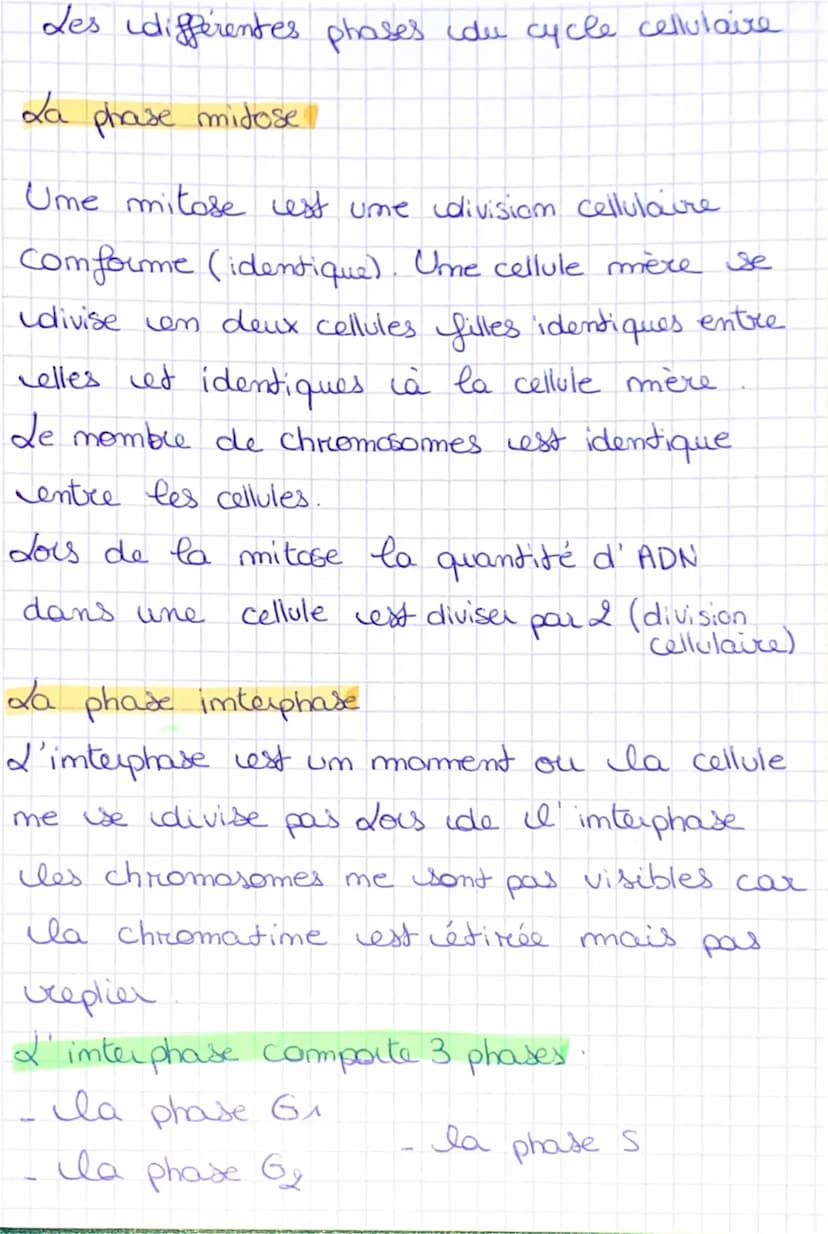 Les différentes phases du cycle cellulaire
La phase mitose
Une mitose est une division cellulaire
conforme (identique). Une cellule mère se
divise en deux cellules filles identiques entre
elles et identiques à la cellule mère.
Le nombre de chromosomes est identique
entre les cellules.
Lors de la mitose la quantité d'ADN
dans une cellule est diviser par 2 (division
cellulaire)
La phase interphase
L'interphase est un moment ou la cellule
ne se divise pas lors de l'interphase
les chromosomes ne sont pas visibles car
la chromatine est étirée mais pas
replier.
L'interphase comporte 3 phases.
- la phase G1
- la phase S
- la phase G2